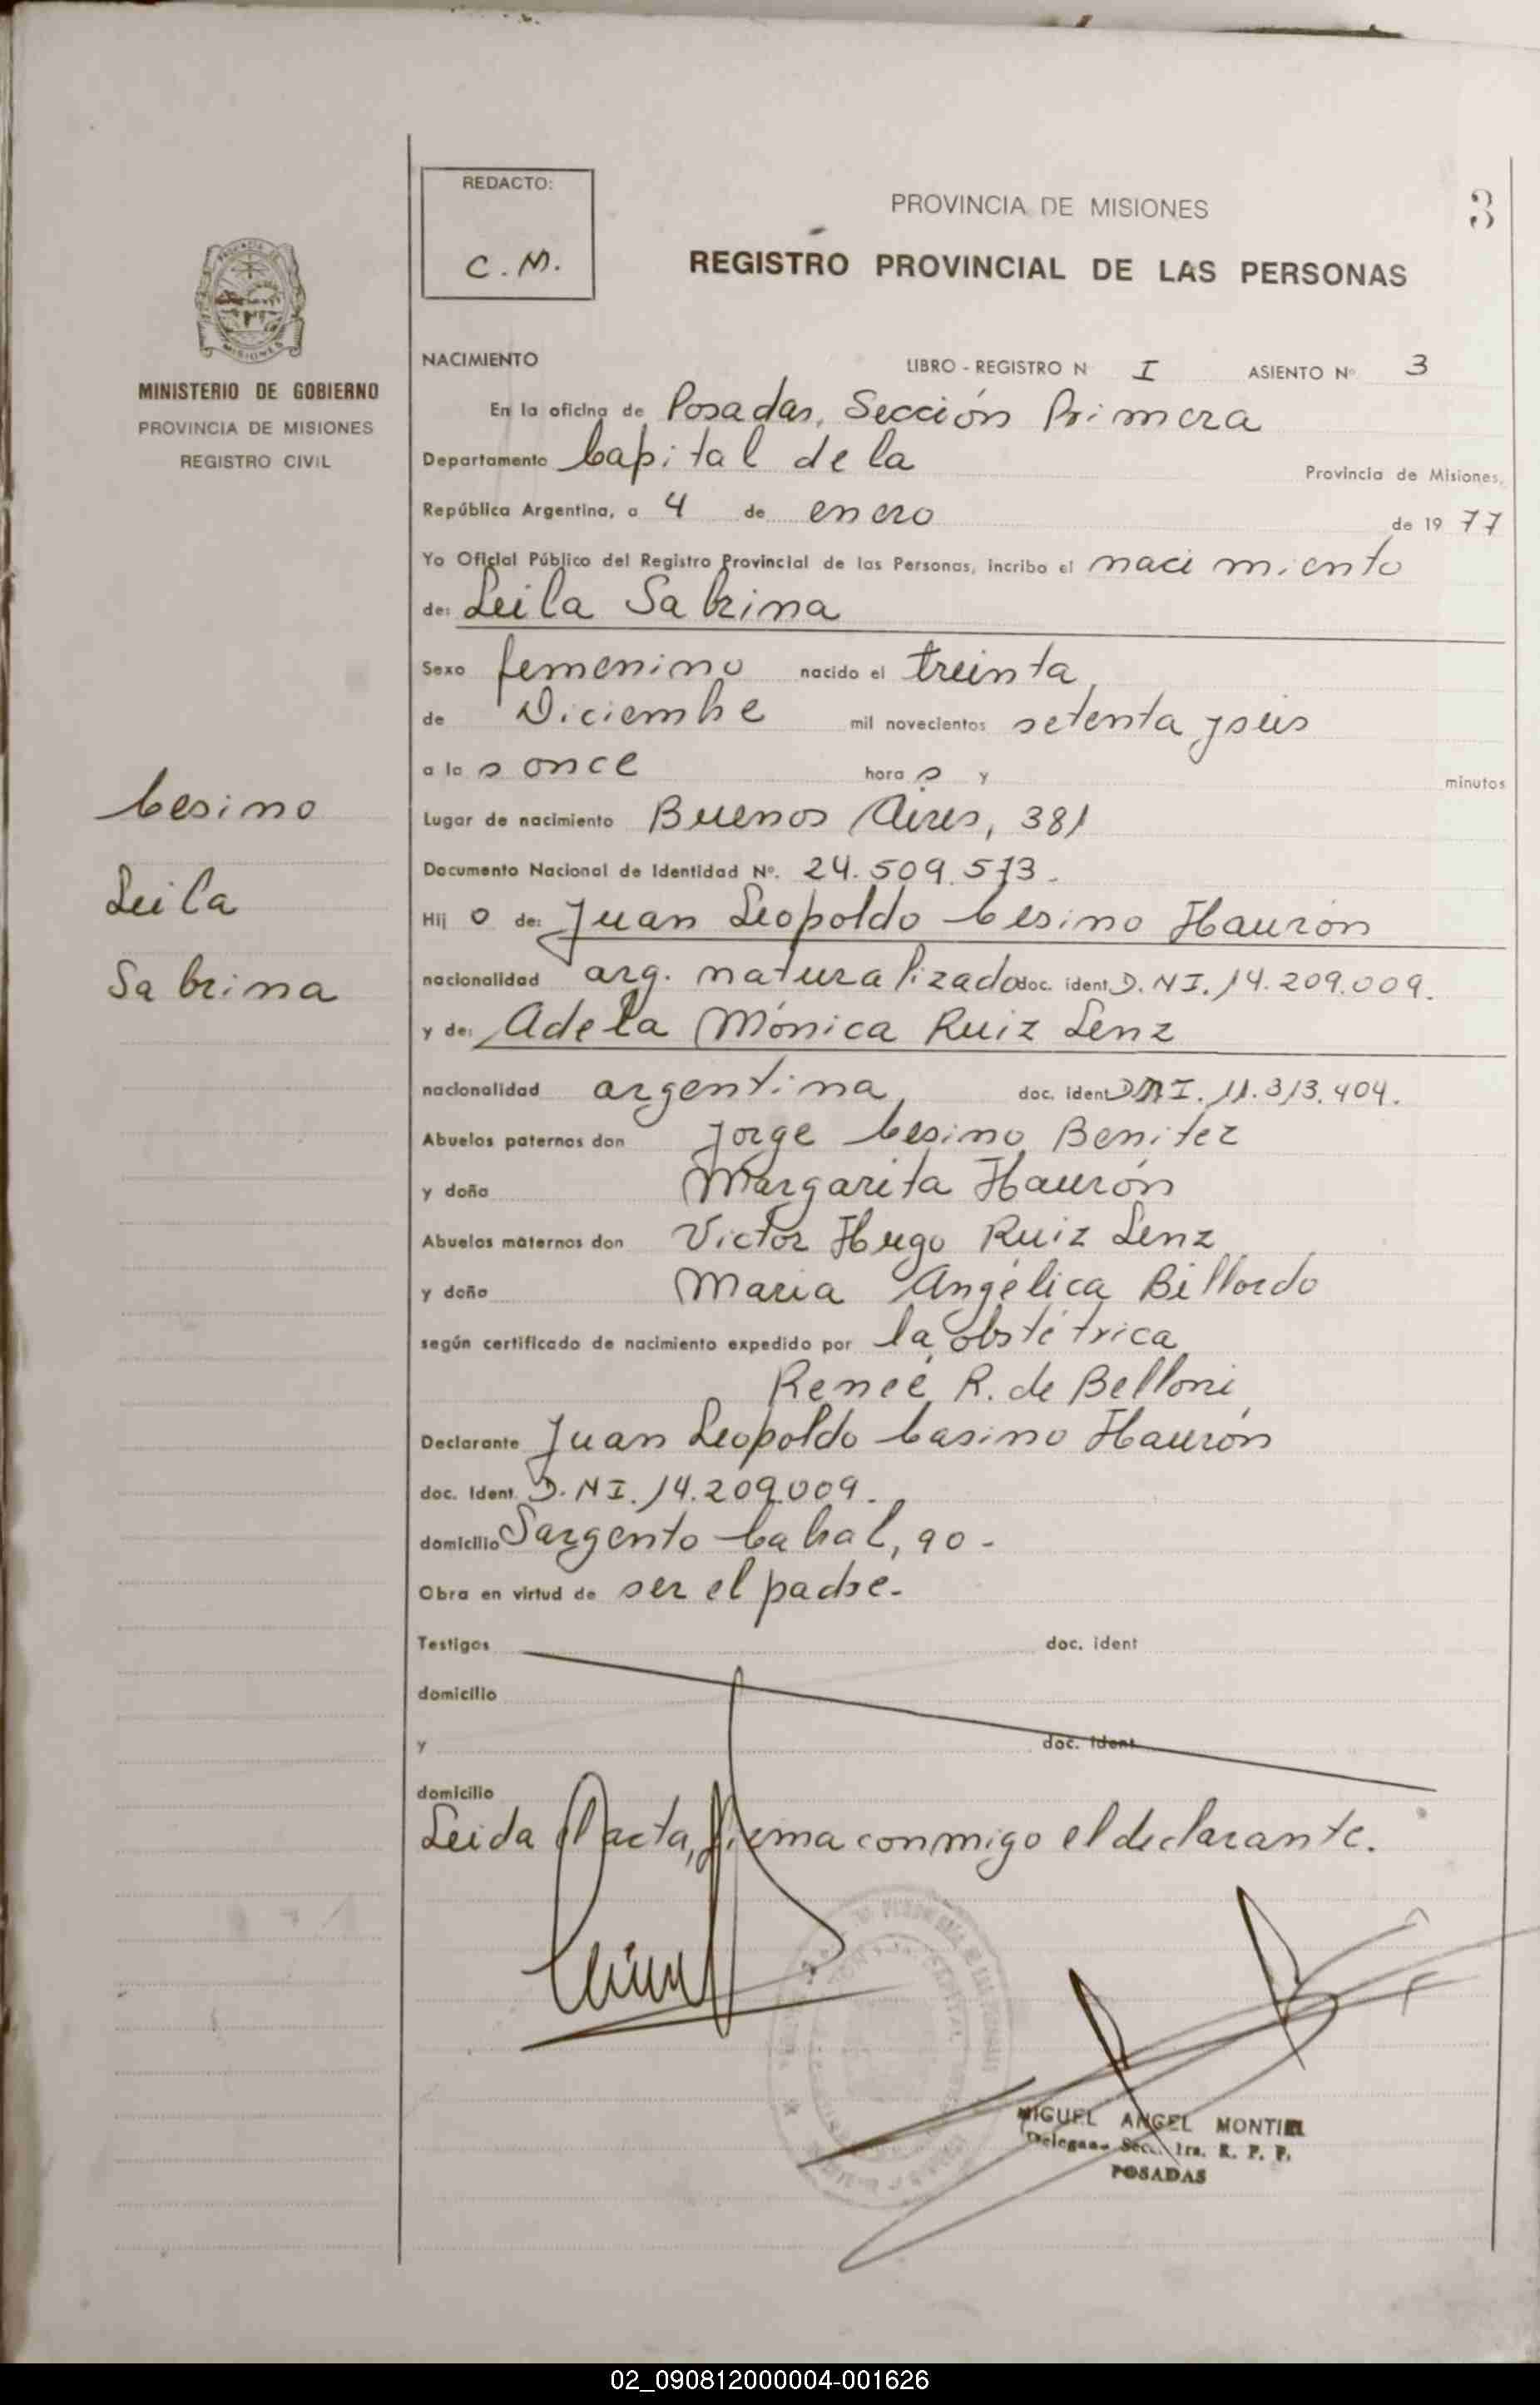 REDACTO:
C. M.
PROVINCIA DE MISIONES
3
REGISTRO PROVINCIAL DE LAS PERSONAS
MISIONES
MINISTERIO DE GOBIERNO
PROVINCIA DE MISIONES
REGISTRO CIVIL
NACIMIENTO LIBRO - REGISTRO N I ASIENTO Nº 3
En la oficina de Posadas, Sección Primera
Departamento Capital de la Provincia de Misiones,
República Argentina, a 4 de enero de 1977
Yo Oficial Público del Registro Provincial de las Personas, incribo el nacimiento
de: Leila Sabrina
Sexo femenino nacido el treinta
de Diciembre mil novecientos setenta y seis
a las once horas y minutos
Cesino
Leila
Sabrina
Lugar de nacimiento Buenos Aires, 381
Documento Nacional de Identidad Nº. 24.509.573.
Hijo de: Juan Leopoldo Cesino Haurón
nacionalidad arg. naturalizado doc. ident D.NI. 14.209.009.
y de: Adela Mónica Ruiz Lenz
nacionalidad argentina, doc. ident DNI. 11.313.404.
Abuelos paternos don Jorge Cesino Benitez
y doña Margarita Haurón
Abuelos maternos don Victor Hugo Ruiz Lenz
y doña Maria Angélica Billordo
según certificado de nacimiento expedido por la obstétrica
Reneé R. de Belloni
Declarante Juan Leopoldo Casino Haurón
doc. Ident. D.NI. 14.209.009.
domicilio Sargento Cabral, 90-
Obra en virtud de ser el padre.
Testigos doc. ident
domicilio
y doc. ident
domicilio
Leida el acta, firma conmigo el declarante.
MIGUEL ANGEL MONTIEL
1ra. R. P. P.
POSADAS
02_090812000004-001626